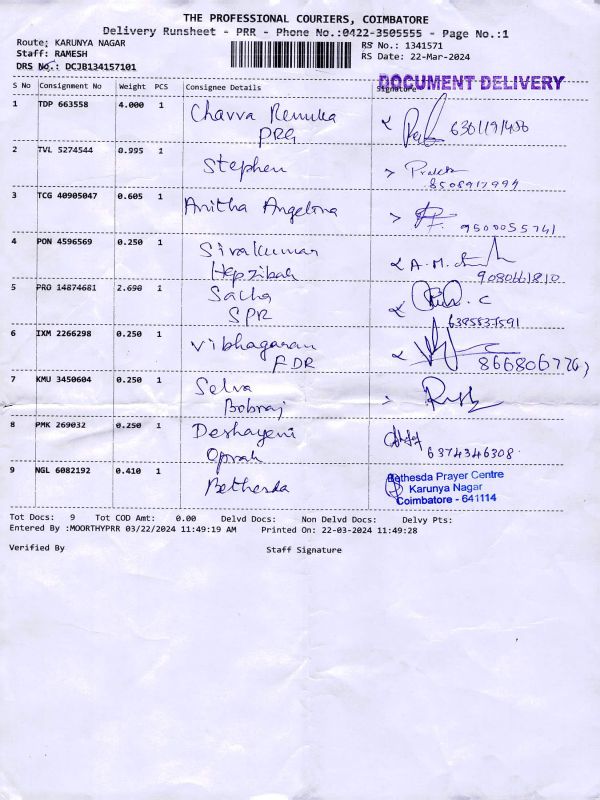 THE PROFESSIONAL COURIERS, COIMBATORE
Delivery Runsheet - PRR - Phone No.:0422-3505555 - Page No.:1
Route: KARUNYA NAGAR
RS No.: 1341571
Staff: RAMESH
RS Date: 22-Mar-2024
DRS No.: DCJB134157101
DOCUMENT DELIVERY
S No Consignment No Weight PCS Consignee Details Signature
1 TDP 663558 4.000 1 Chavva Renuka
PRG
2 TVL 5274544 0.995 1 Stephen
3 TCG 40905047 0.605 1 Anitha Angelina 9500055741
4 PON 4596569 0.250 1 Sivakumar A.M.
Hepzibah 9080661810
5 PRO 14874681 2.690 1 Sacha
SPR 6385837591
6 IXM 2266298 0.250 1 Vibhagaran
FDR
7 KMU 3450604 0.250 1 Selva
Bobraj
8 PMK 269032 0.250 1 Deshayeni
Oprah 6374346308
9 NGL 6082192 0.410 1 Bethesda
Bethesda Prayer Centre
Karunya Nagar
Coimbatore - 641114
Tot Docs: 9 Tot COD Amt: 0.00 Delvd Docs: Non Delvd Docs: Delvy Pts:
Entered By :MOORTHYPRR 03/22/2024 11:49:19 AM Printed On: 22-03-2024 11:49:28
Verified By Staff Signature